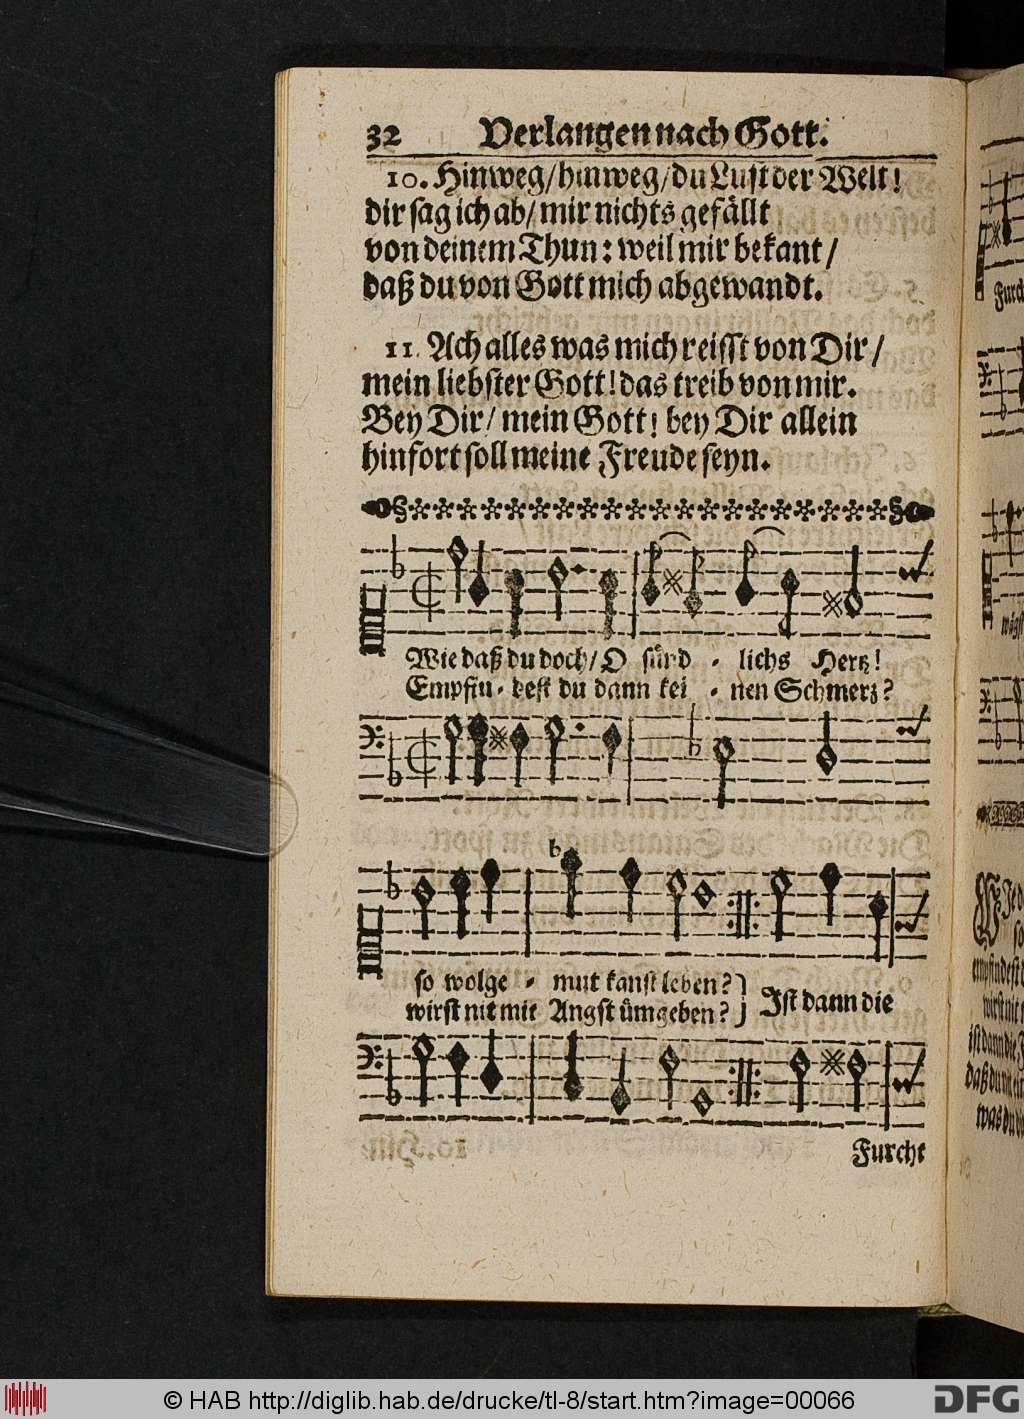 32 Verlangen nach Gott.
10. Hinweg/ hinweg/ du Lust der Welt!
dir sag ich ab/ mir nichts gefällt
von deinem Thun: weil mir bekant/
daß du von Gott mich abgewandt.
11. Ach alles was mich reisst von Dir/
mein liebster Gott! das treib von mir.
Bey Dir/ mein Gott! bey Dir allein
hinfort soll meine Freude seyn.
Wie daß du doch/ O sünd - lichs Hertz!
Empfin - dest du dann kei - nen Schmerz?
so wolge - mut kanst leben?
wirst nit mit Angst ümgeben?
Ist dann die
Furcht
© HAB http://diglib.hab.de/drucke/tl-8/start.htm?image=00066
DFG